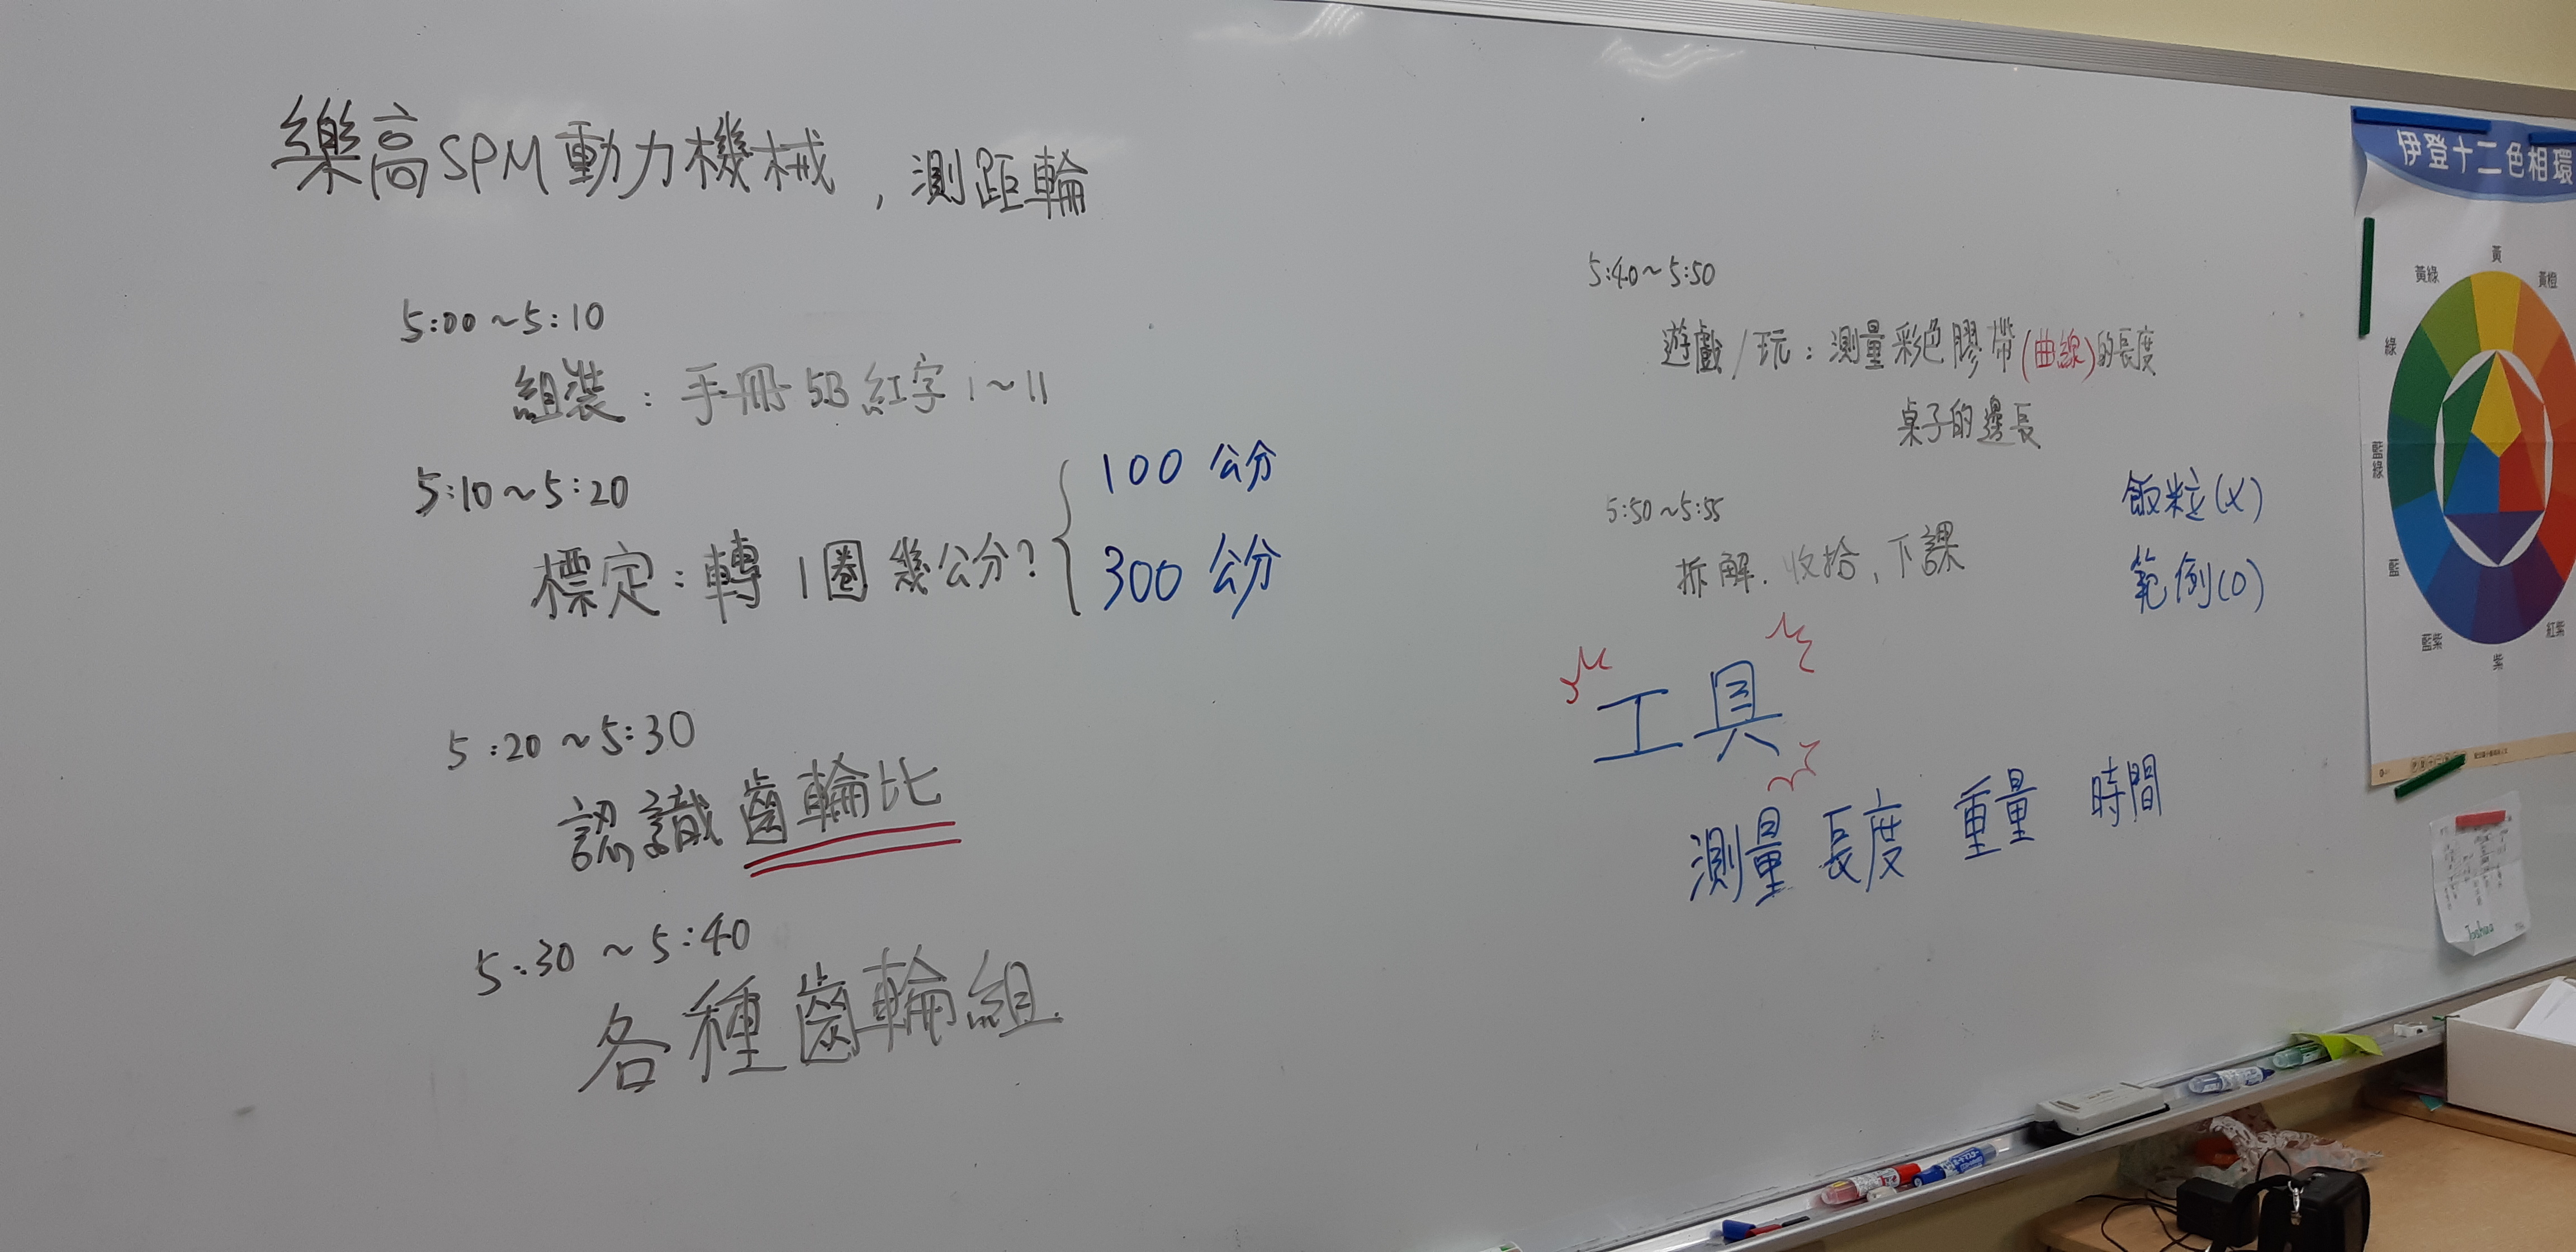 樂高SPM動力機械，測距輪
5:00～5:10
組裝：手冊5B紅字1～11
5:10～5:20
標定：轉1圈幾公分？
100 公分
300 公分
5:20～5:30
認識齒輪比
5:30～5:40
各種齒輪組
5:40～5:50
遊戲/玩：測量彩色膠帶(曲線)的長度
桌子的邊長
5:50～5:55
拆解、收拾、下課
飯粒(X)
範例(O)
工具
測量 長度 重量 時間
伊登十二色相環
黃
黃綠
黃橙
綠
藍綠
藍
藍紫
紫
紅紫
Joshua